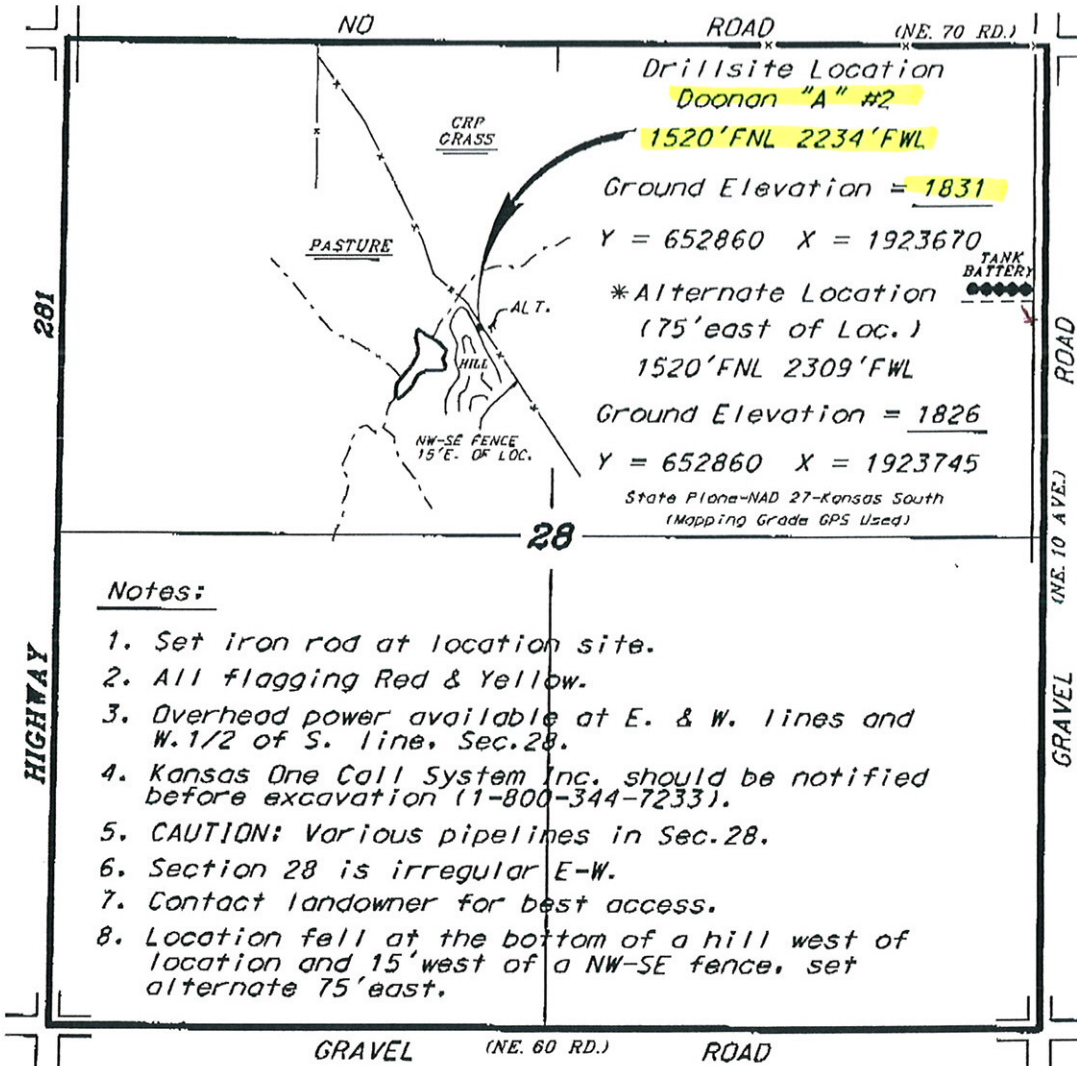 NO ROAD (NE. 70 RD.)
Drillsite Location
Doonan "A" #2
1520'FNL 2234'FWL
Ground Elevation = 1831
Y = 652860 X = 1923670
TANK
BATTERY
*Alternate Location
(75'east of Loc.)
1520'FNL 2309'FWL
Ground Elevation = 1826
Y = 652860 X = 1923745
State Plane-NAD 27-Kansas South
(Mapping Grade GPS Used)
CRP
GRASS
PASTURE
ALT.
HILL
NW-SE FENCE
15'E. OF LOC.
28
281
HIGHWAY
ROAD
(NE. 10 AVE.)
GRAVEL
Notes:
1. Set iron rod at location site.
2. All flagging Red & Yellow.
3. Overhead power available at E. & W. lines and
W.1/2 of S. line, Sec.28.
4. Kansas One Call System Inc. should be notified
before excavation (1-800-344-7233).
5. CAUTION: Various pipelines in Sec.28.
6. Section 28 is irregular E-W.
7. Contact landowner for best access.
8. Location fell at the bottom of a hill west of
location and 15'west of a NW-SE fence, set
alternate 75'east.
GRAVEL (NE. 60 RD.) ROAD